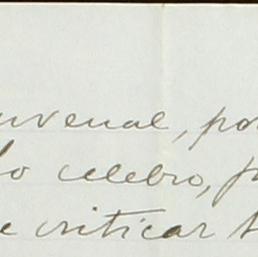 uvenal, po
lo celebro, p
e criticar t